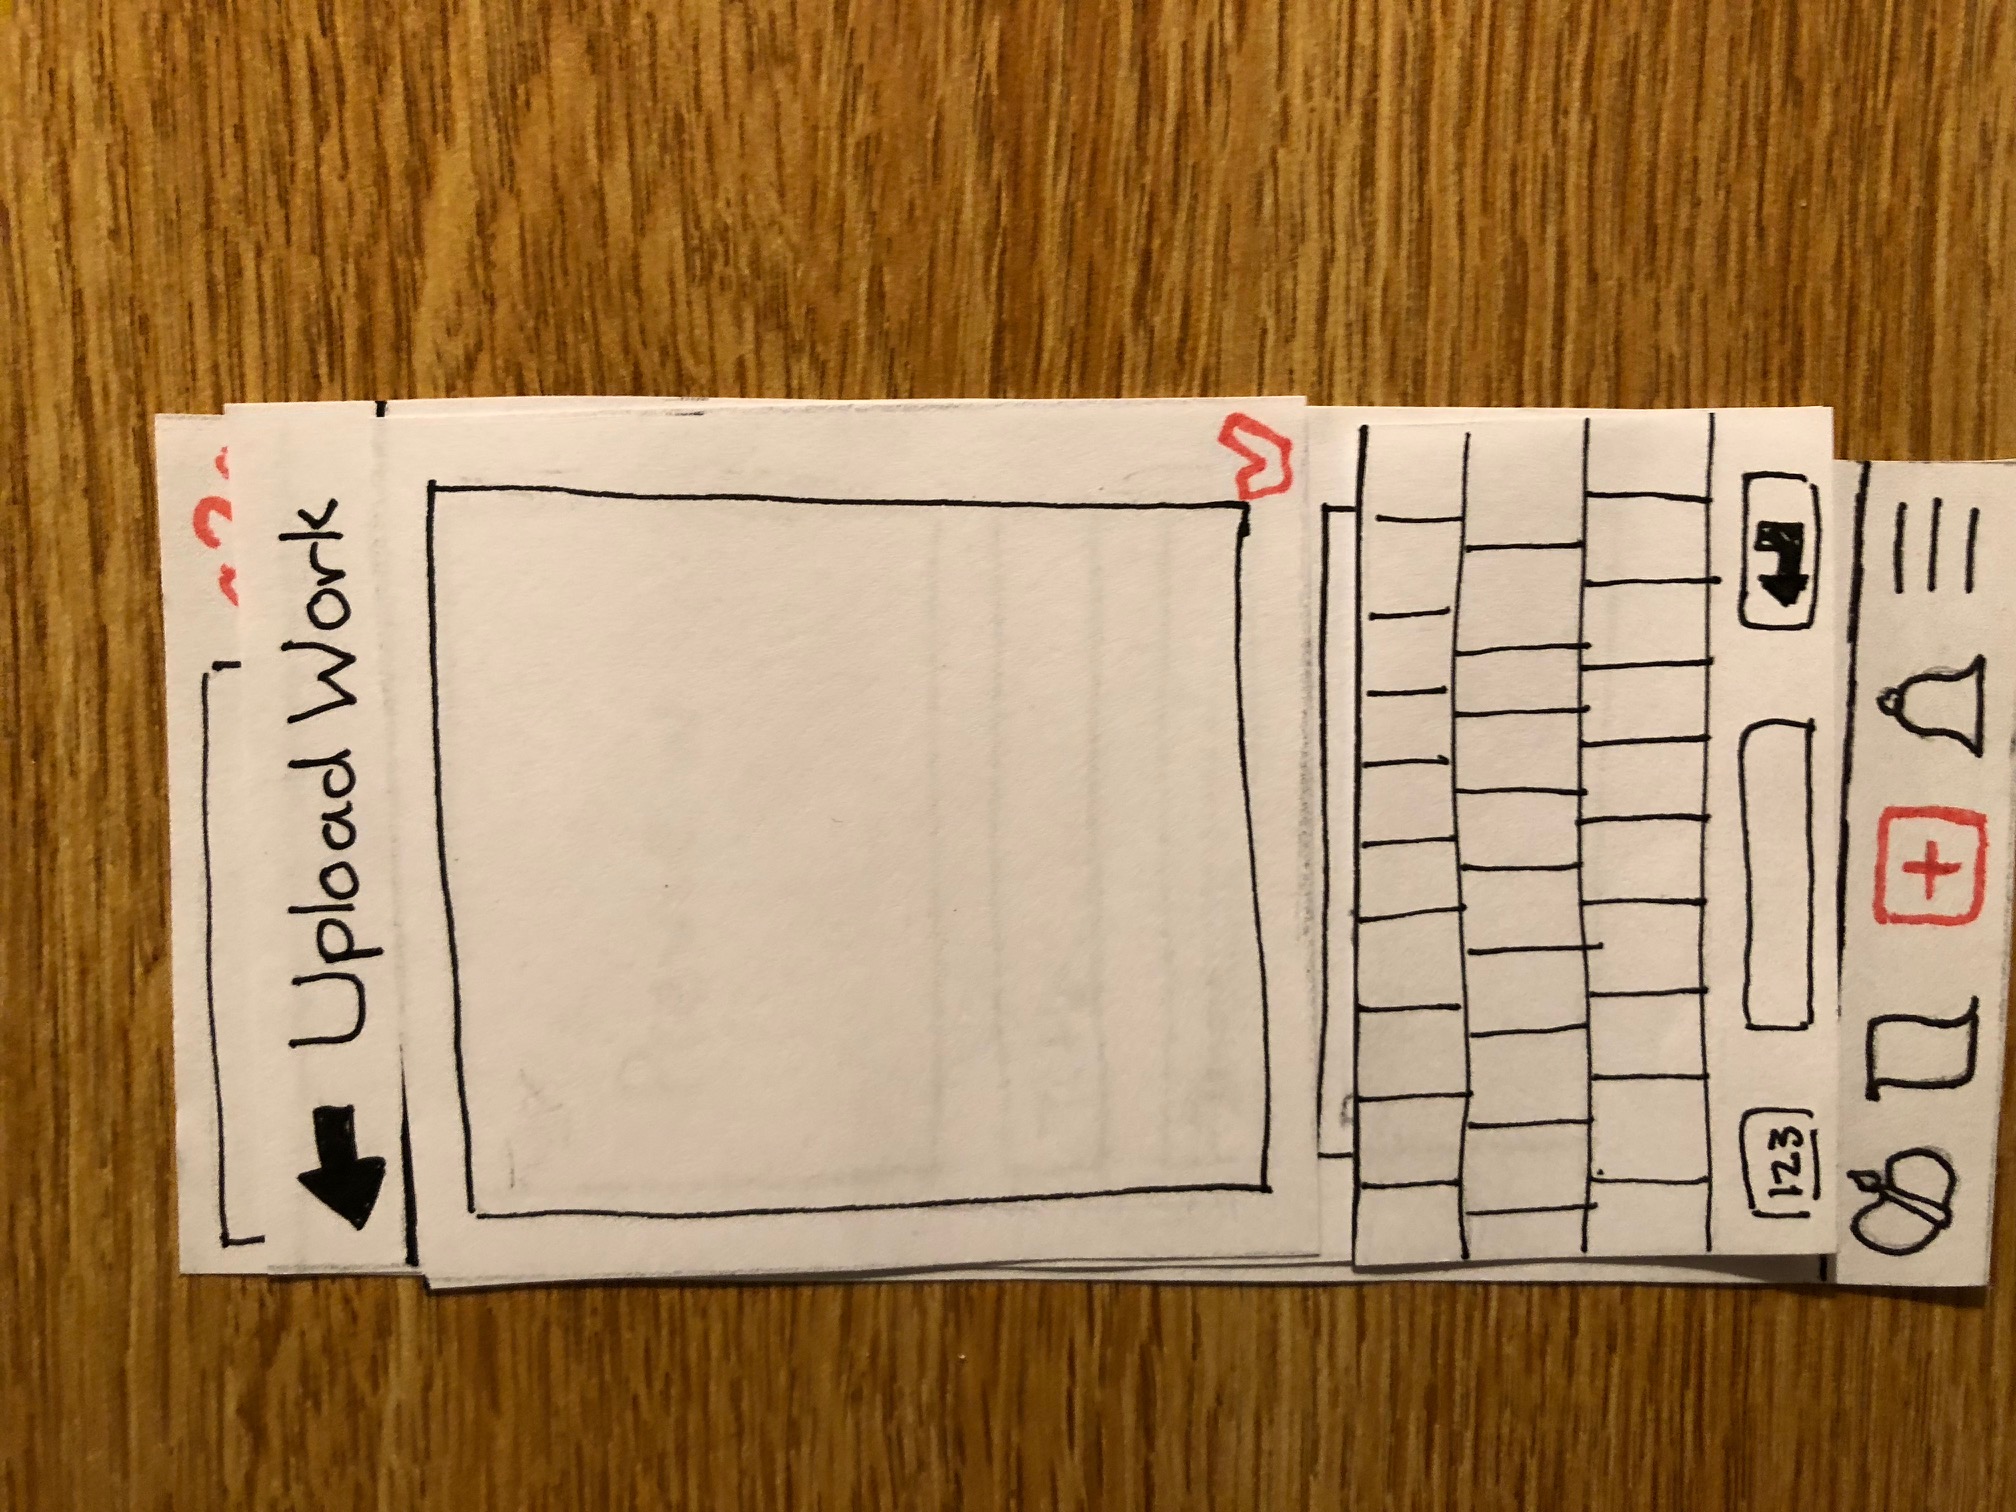 Upload Work
123